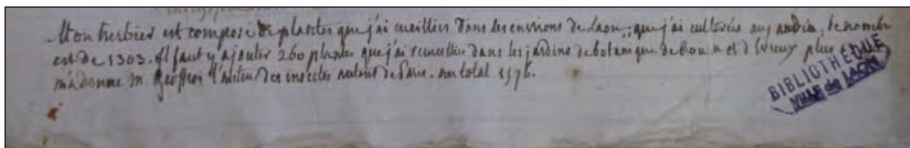 Mon herbier est composé de plantes que j'ai cueillies dans les environs de Laon, que j'ai cultivées au jardin, le nombre
est de 1303. il faut y ajouter 260 plantes que j'ai recueillies dans les jardins de botanique de Rouen et d'Evreux plus
m'a donné m. Geoffroi l'auteur des insectes autour de Paris. au total 1576.
BIBLIOTHEQUE
VILLE de LAON